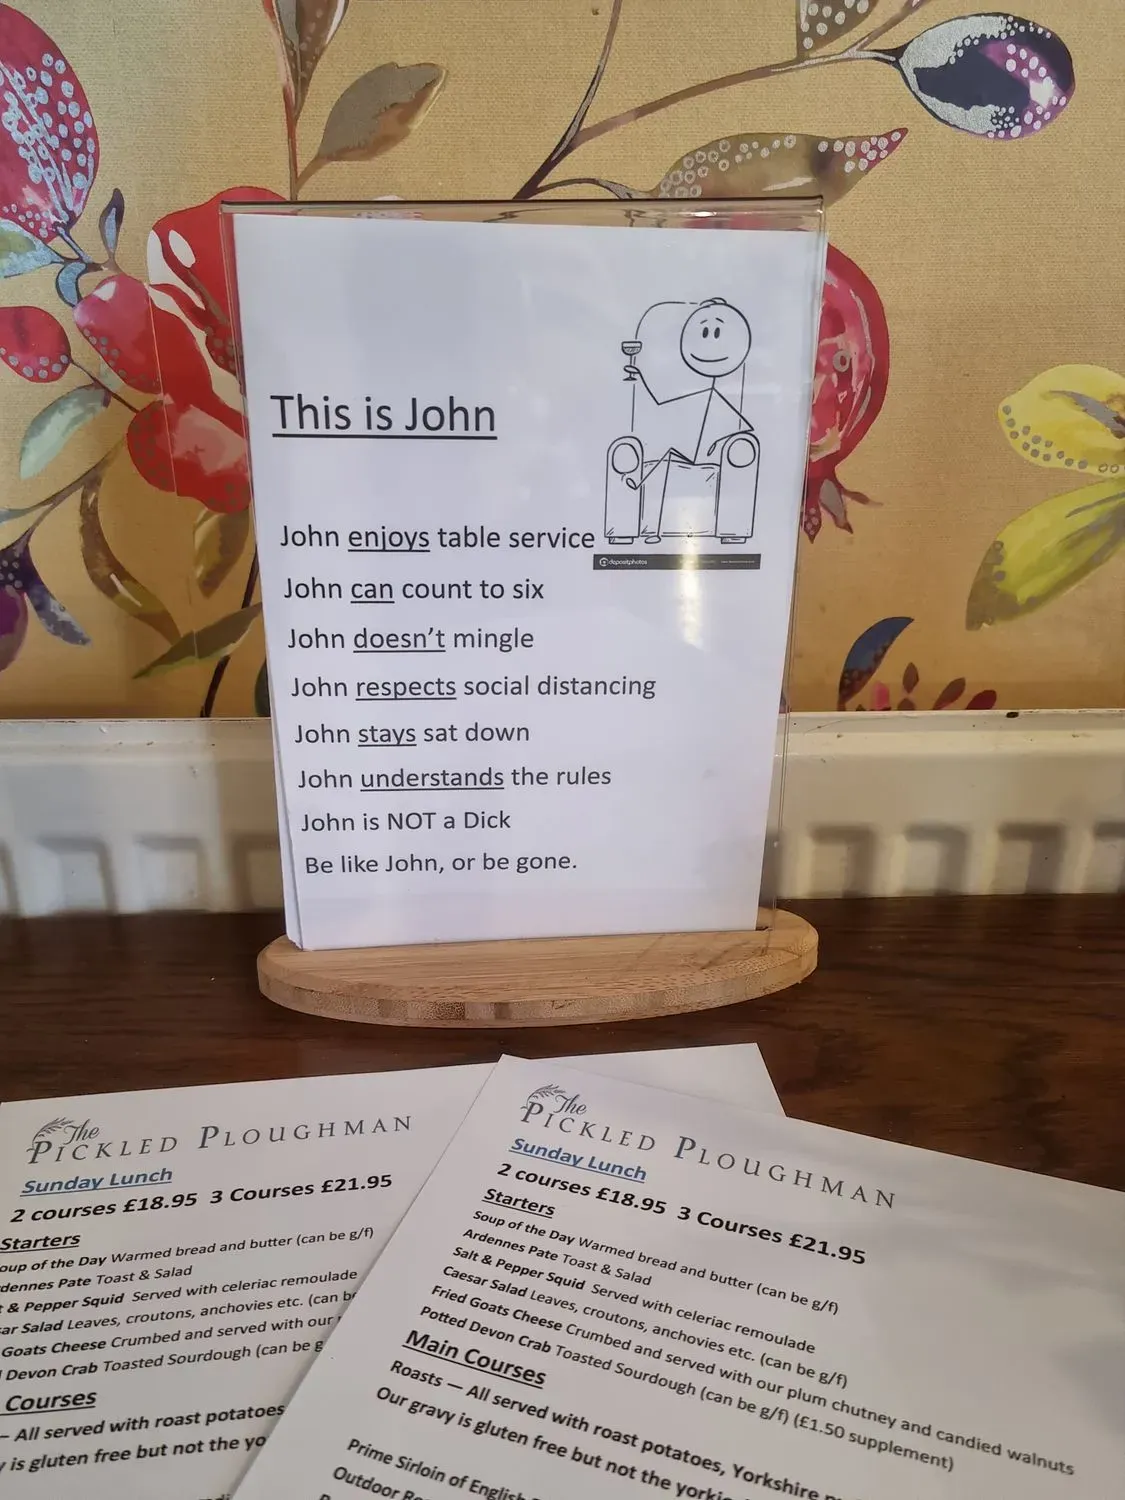 This is John
John enjoys table service
depositphotos
John can count to six
John doesn't mingle
John respects social distancing
John stays sat down
John understands the rules
John is NOT a Dick
Be like John, or be gone.
The
PICKLED PLOUGHMAN
Sunday Lunch
2 courses £18.95 3 Courses £21.95
Starters
oup of the Day Warmed bread and butter (can be g/f)
rdennes Pate Toast & Salad
t & Pepper Squid Served with celeriac remoulade
ar Salad Leaves, croutons, anchovies etc. (can be
Goats Cheese Crumbed and served with our
Devon Crab Toasted Sourdough (can be g
Courses
– All served with roast potatoes
y is gluten free but not the yo
The
PICKLED PLOUGHMAN
Sunday Lunch
2 courses £18.95 3 Courses £21.95
Starters
Soup of the Day Warmed bread and butter (can be g/f)
Ardennes Pate Toast & Salad
Salt & Pepper Squid Served with celeriac remoulade
Caesar Salad Leaves, croutons, anchovies etc. (can be g/f)
Fried Goats Cheese Crumbed and served with our plum chutney and candied walnuts
Potted Devon Crab Toasted Sourdough (can be g/f) (£1.50 supplement)
Main Courses
Roasts — All served with roast potatoes, Yorkshire
Our gravy is gluten free but not the yorki
Prime Sirloin of English
Outdoor